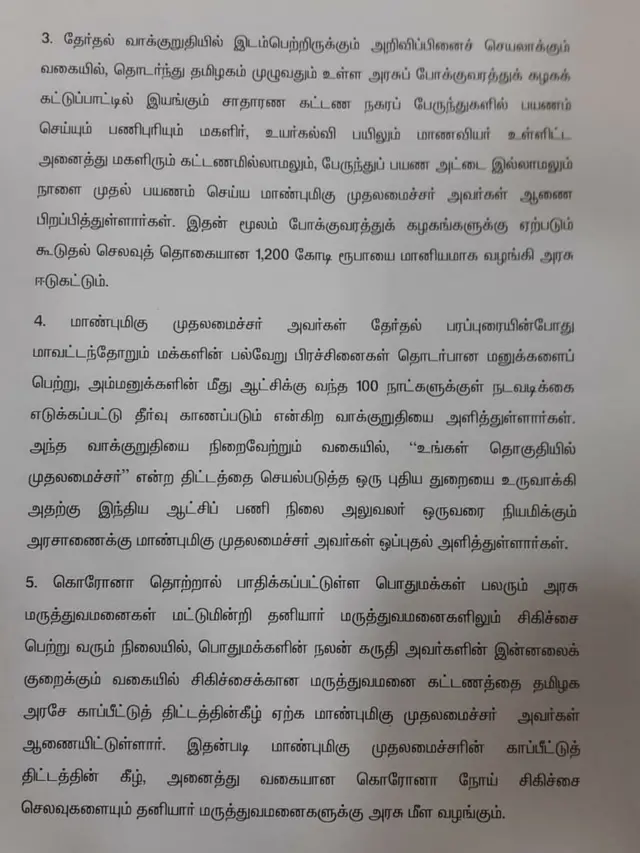 3. தேர்தல் வாக்குறுதியில் இடம்பெற்றிருக்கும் அறிவிப்பினைச் செயலாக்கும்
வகையில், தொடர்ந்து தமிழகம் முழுவதும் உள்ள அரசுப் போக்குவரத்துக் கழகக்
கட்டுப்பாட்டில் இயங்கும் சாதாரண கட்டண நகரப் பேருந்துகளில் பயணம்
செய்யும் பணிபுரியும் மகளிர், உயர்கல்வி பயிலும் மாணவியர் உள்ளிட்ட
அனைத்து மகளிரும் கட்டணமில்லாமலும், பேருந்துப் பயண அட்டை இல்லாமலும்
நாளை முதல் பயணம் செய்ய மாண்புமிகு முதலமைச்சர் அவர்கள் ஆணை
பிறப்பித்துள்ளார்கள். இதன் மூலம் போக்குவரத்துக் கழகங்களுக்கு ஏற்படும்
கூடுதல் செலவுத் தொகையான 1,200 கோடி ரூபாயை மானியமாக வழங்கி அரசு
ஈடுகட்டும்.
4. மாண்புமிகு முதலமைச்சர் அவர்கள் தேர்தல் பரப்புரையின்போது
மாவட்டந்தோறும் மக்களின் பல்வேறு பிரச்சினைகள் தொடர்பான மனுக்களைப்
பெற்று, அம்மனுக்களின் மீது ஆட்சிக்கு வந்த 100 நாட்களுக்குள் நடவடிக்கை
எடுக்கப்பட்டு தீர்வு காணப்படும் என்கிற வாக்குறுதியை அளித்துள்ளார்கள்.
அந்த வாக்குறுதியை நிறைவேற்றும் வகையில், “உங்கள் தொகுதியில்
முதலமைச்சர்” என்ற திட்டத்தை செயல்படுத்த ஒரு புதிய துறையை உருவாக்கி
அதற்கு இந்திய ஆட்சிப் பணி நிலை அலுவலர் ஒருவரை நியமிக்கும்
அரசாணைக்கு மாண்புமிகு முதலமைச்சர் அவர்கள் ஒப்புதல் அளித்துள்ளார்கள்.
5. கொரோனா தொற்றால் பாதிக்கப்பட்டுள்ள பொதுமக்கள் பலரும் அரசு
மருத்துவமனைகள் மட்டுமின்றி தனியார் மருத்துவமனைகளிலும் சிகிச்சை
பெற்று வரும் நிலையில், பொதுமக்களின் நலன் கருதி அவர்களின் இன்னலைக்
குறைக்கும் வகையில் சிகிச்சைக்கான மருத்துவமனை கட்டணத்தை தமிழக
அரசே காப்பீட்டுத் திட்டத்தின்கீழ் ஏற்க மாண்புமிகு முதலமைச்சர் அவர்கள்
ஆணையிட்டுள்ளார். இதன்படி மாண்புமிகு முதலமைச்சரின் காப்பீட்டுத்
திட்டத்தின் கீழ், அனைத்து வகையான கொரோனா நோய் சிகிச்சை
செலவுகளையும் தனியார் மருத்துவமனைகளுக்கு அரசு மீள வழங்கும்.